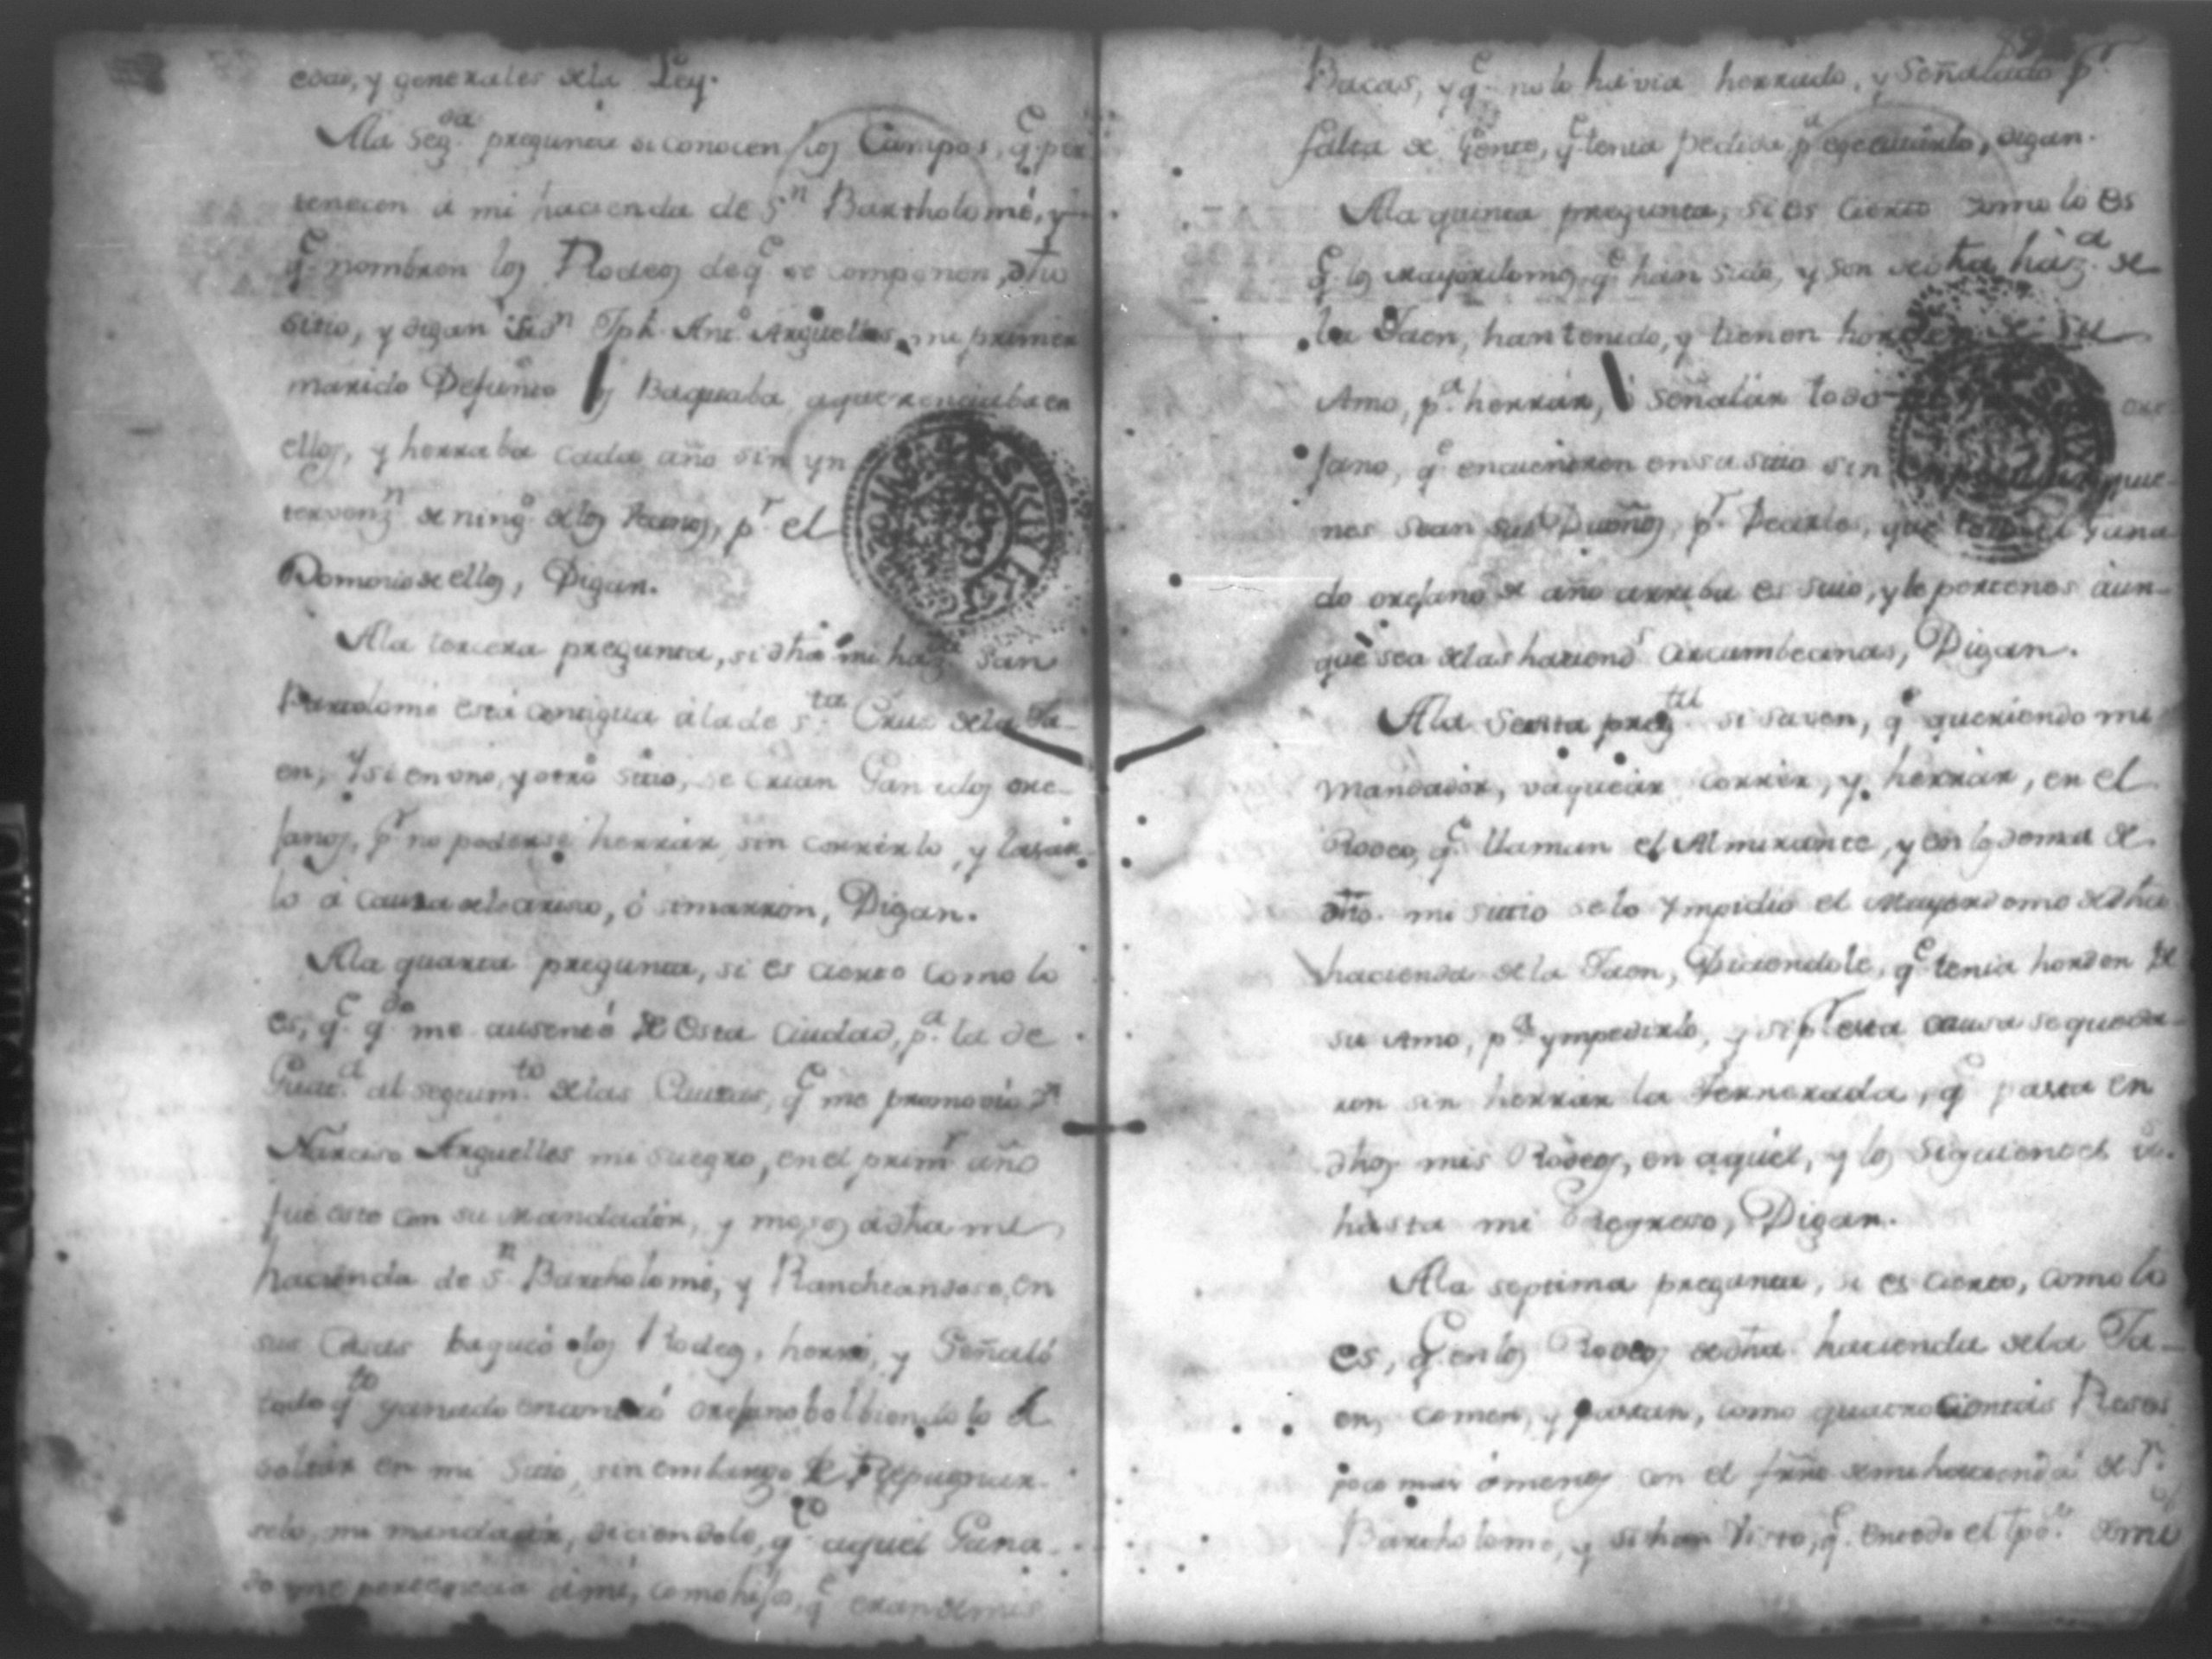 edad, y generales dela Ley.
Ala seg.da pregunta si conocen los Campos, q.e per
tenecen á mi hacienda de s.n Bartholomé, y
q.e nombren los Rodeos de q.e se componen, dho
sitio, y digan si d.n Jph. Ant.o Arguelles, mi primer
marido Defunto Baqueaba aquerenciaba en
ellos, y herraba cada año sin yn
tervenz.n de ning.o delos Vecinos, p.r el
Domorio de ellos, Digan.
Ala tercera pregunta, si dha mi haz.da San
Bartolomé está contigua ála de s.ta Cruz dela Ta-
en, y si en uno, y otro sitio, se crian Ganados ore-
janos, p.r no poderse herrar, sin correrlo, y lasar-
lo á causa de lo arisco, ó simarron, Digan.
Ala quarta pregunta, si es cierto como lo
es, q.e q.do me ausenté de esta Ciudad, p.a la de
Guat.a al seguim.to delas Causas, q.e me promovió D.n
Narciso Arguelles mi suegro, en el prim.r año
fué este con su mandador, y mosos á dha mi
hacienda de s.n Bartholomé, y Rancheandose en
sus Casas baqueó los Rodeos, herró, y Señaló
todo q.to ganado encontró orejano bolbiendolo á
soltar en mi Sitio, sin embargo de Repugnar-
selo, mi mandador, diciendole, q.e aquel Gana-
do me pertenecia á mi, como hijos, q.e eran demis
Bacas, y q.e no lo havia herrado, y Señalado p.r
falta de Gente, q.e tenia pedida p.a egecutarlo, digan.
Ala quinta pregunta, si es cierto como lo es
q.e los mayordomos, q.e han sido, y son de dha haz.da de
la Taen, han tenido, y tienen horden de su
Amo, p.a herrar, ó señalar todo ore-
jano, q.e encuentren en su sitio sin quie-
nes sean sus Dueños, p.r Decirles, que todo el Gana
do orejano de año arriba es suio, y le pertenes aun-
que sea delas haciend.s circumbecinas, Digan.
Ala Sexta preg.ta si saven, q.e queriendo mi
mandador, vaquear correr, y herrar, en el
Rodeo, q.e llaman el Almirante, y en lo demas de
dho. mi sitio se lo Ympidió el Mayordomo de dha
hacienda dela Taen, Diciendole, q.e tenia horden de
su Amo, p.a ympedirlo, y si p.r esta causa se queda-
ron sin herrar la Ternerada, q.e pasta en
dhos mis Rodeos, en aquel, y los siguientes a.s
hasta mi Regreso, Digan.
Ala septima pregunta, si es cierto, como lo
es, q.e en los Rodeos de dha hacienda dela Ta-
en, comen, y pastan, como quatrocientas Reses
poco mas ómenos con el frro demi hacienda de S.n
Bartholomé, y si han Visto, q.e en todo el tpo. demi